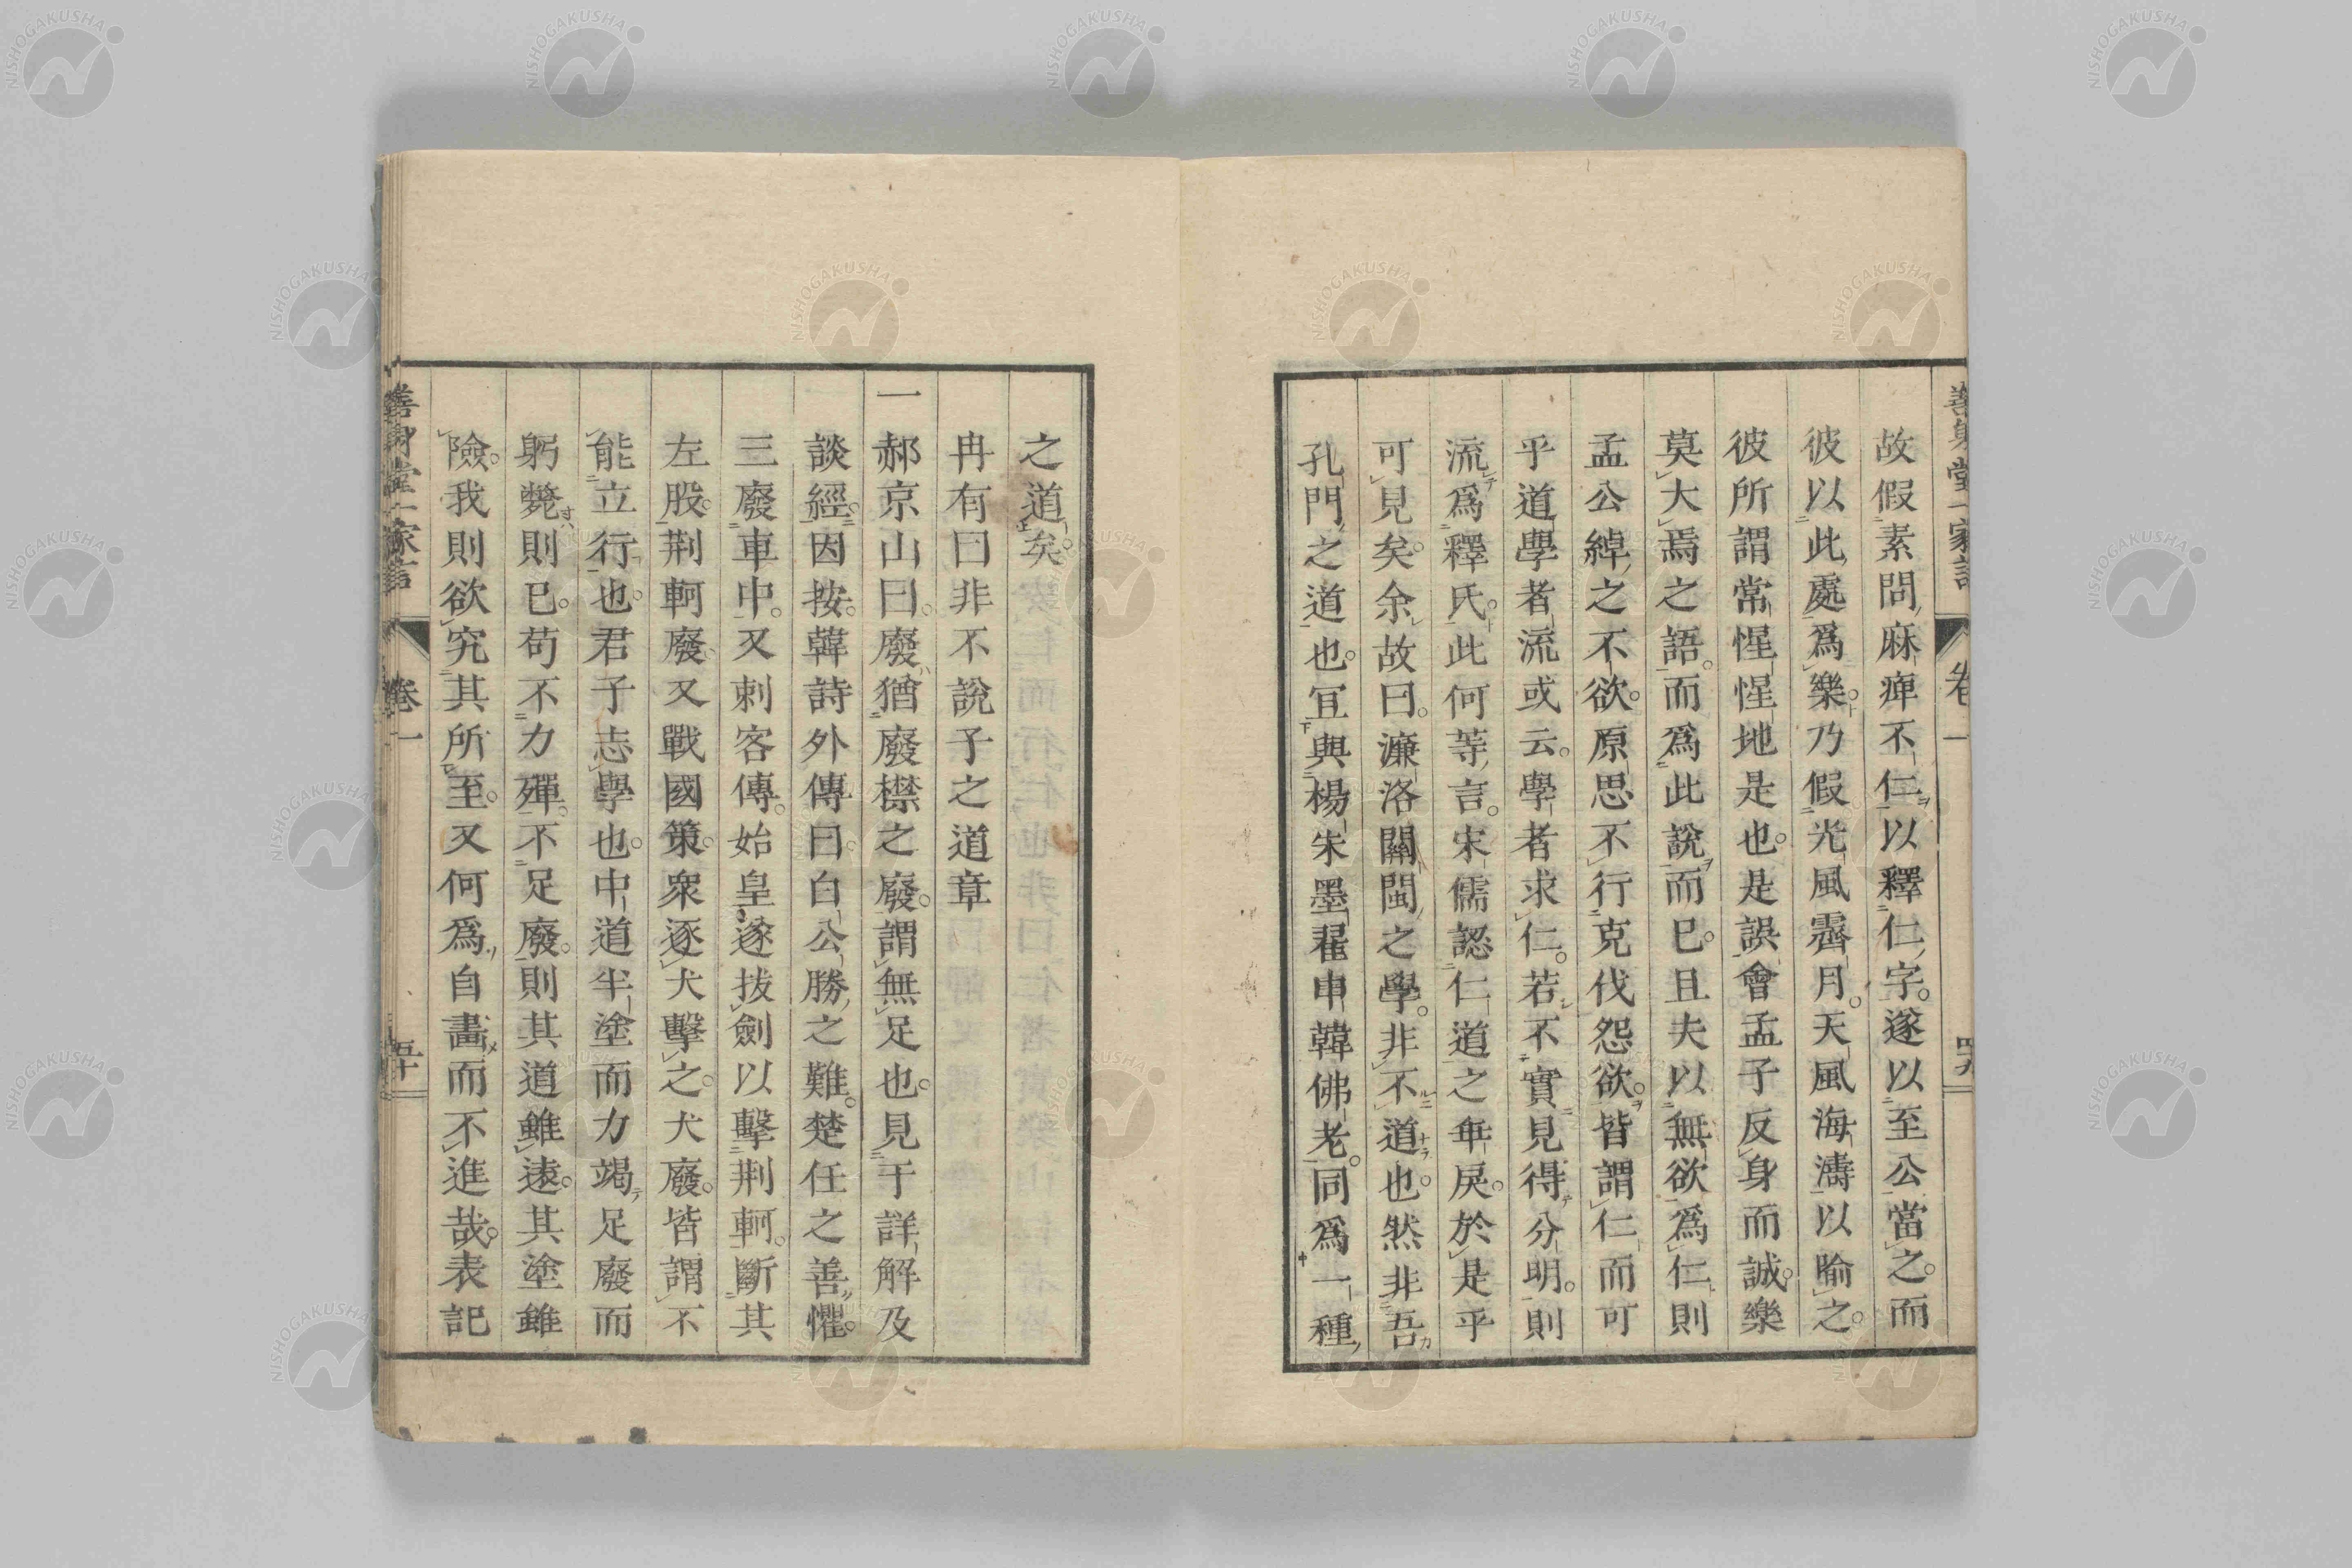 故假素問麻痺不仁以釋仁字。遂以至公當之。而
彼以此處爲樂。乃假光風霽月。天風海濤以喻之。
彼所謂常惺惺地是也。是誤會孟子反身而誠。樂
莫大焉之語。而爲此說而已。且夫以無欲爲仁則
孟公綽之不欲。原思不行克伐怨欲。皆謂仁而可
乎道學者流或云。學者求仁。若不實見得分明。則
流爲釋氏。此何等言。宋儒認仁道之乖戾。於是乎
可見矣。余故曰。濂洛關閩之學。非不道也。然非吾
孔門之道也。宜與楊朱墨翟申韓佛老。同爲一種
之道矣。
冉有曰非不說子之道章
一郝京山曰。廢猶廢襟之廢。謂無足也。見于詳解及
談經。因按。韓詩外傳曰。白公勝之難。楚任之善懼。
三廢車中。又刺客傳。始皇遂拔劍以擊荆軻。斷其
左股。荆軻廢。又戰國策。衆逐犬擊之。犬廢。皆謂不
能立行也。君子志學也。中道半塗而力竭足廢而
躬斃則已。苟不力殫。不足廢。則其道雖遠。其塗雖
險。我則欲究其所至。又何爲自畫而不進哉。表記
善身堂一家言 卷一 五十